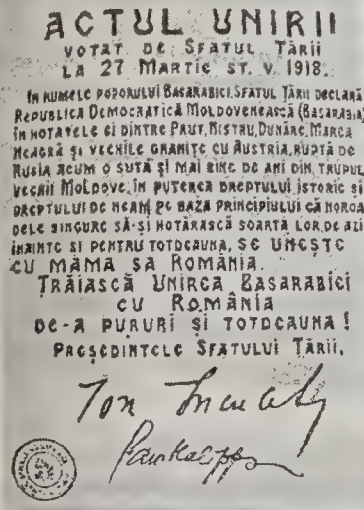 ACTUL UNIRII
VOTAT DE SFATUL ȚĂRII
LA 27 MARTIE ST. V. 1918.
ÎN NUMELE POPORULUI BASARABIEI, SFATUL ȚĂRII DECLARĂ
REPUBLICA DEMOCRATICĂ MOLDOVENEASCĂ (BASARABIA)
ÎN HOTARELE EI DINTRE PRUT, NISTRU, DUNĂRE, MAREA
NEAGRĂ ȘI VECHILE GRANIȚE CU AUSTRIA, RUPTĂ DE
RUSIA ACUM O SUTĂ ȘI MAI BINE DE ANI DIN TRUPUL
VECHII MOLDOVE. ÎN PUTEREA DREPTULUI ISTORIC ȘI
DREPTULUI DE NEAM, PE BAZA PRINCIPIULUI CĂ NOROA
DELE SINGURE SĂ-ȘI HOTĂRASCĂ SOARTA LOR, DE AZI
ÎNAINTE ȘI PENTRU TOTDEAUNA, SE UNEȘTE
CU MAMA SA ROMÂNIA.
TRĂIASCĂ UNIREA BASARABIEI
CU ROMÂNIA
DE-A PURURI ȘI TOTDEAUNA!
PREȘEDINTELE SFATULUI ȚĂRII,
Ion Inculeț